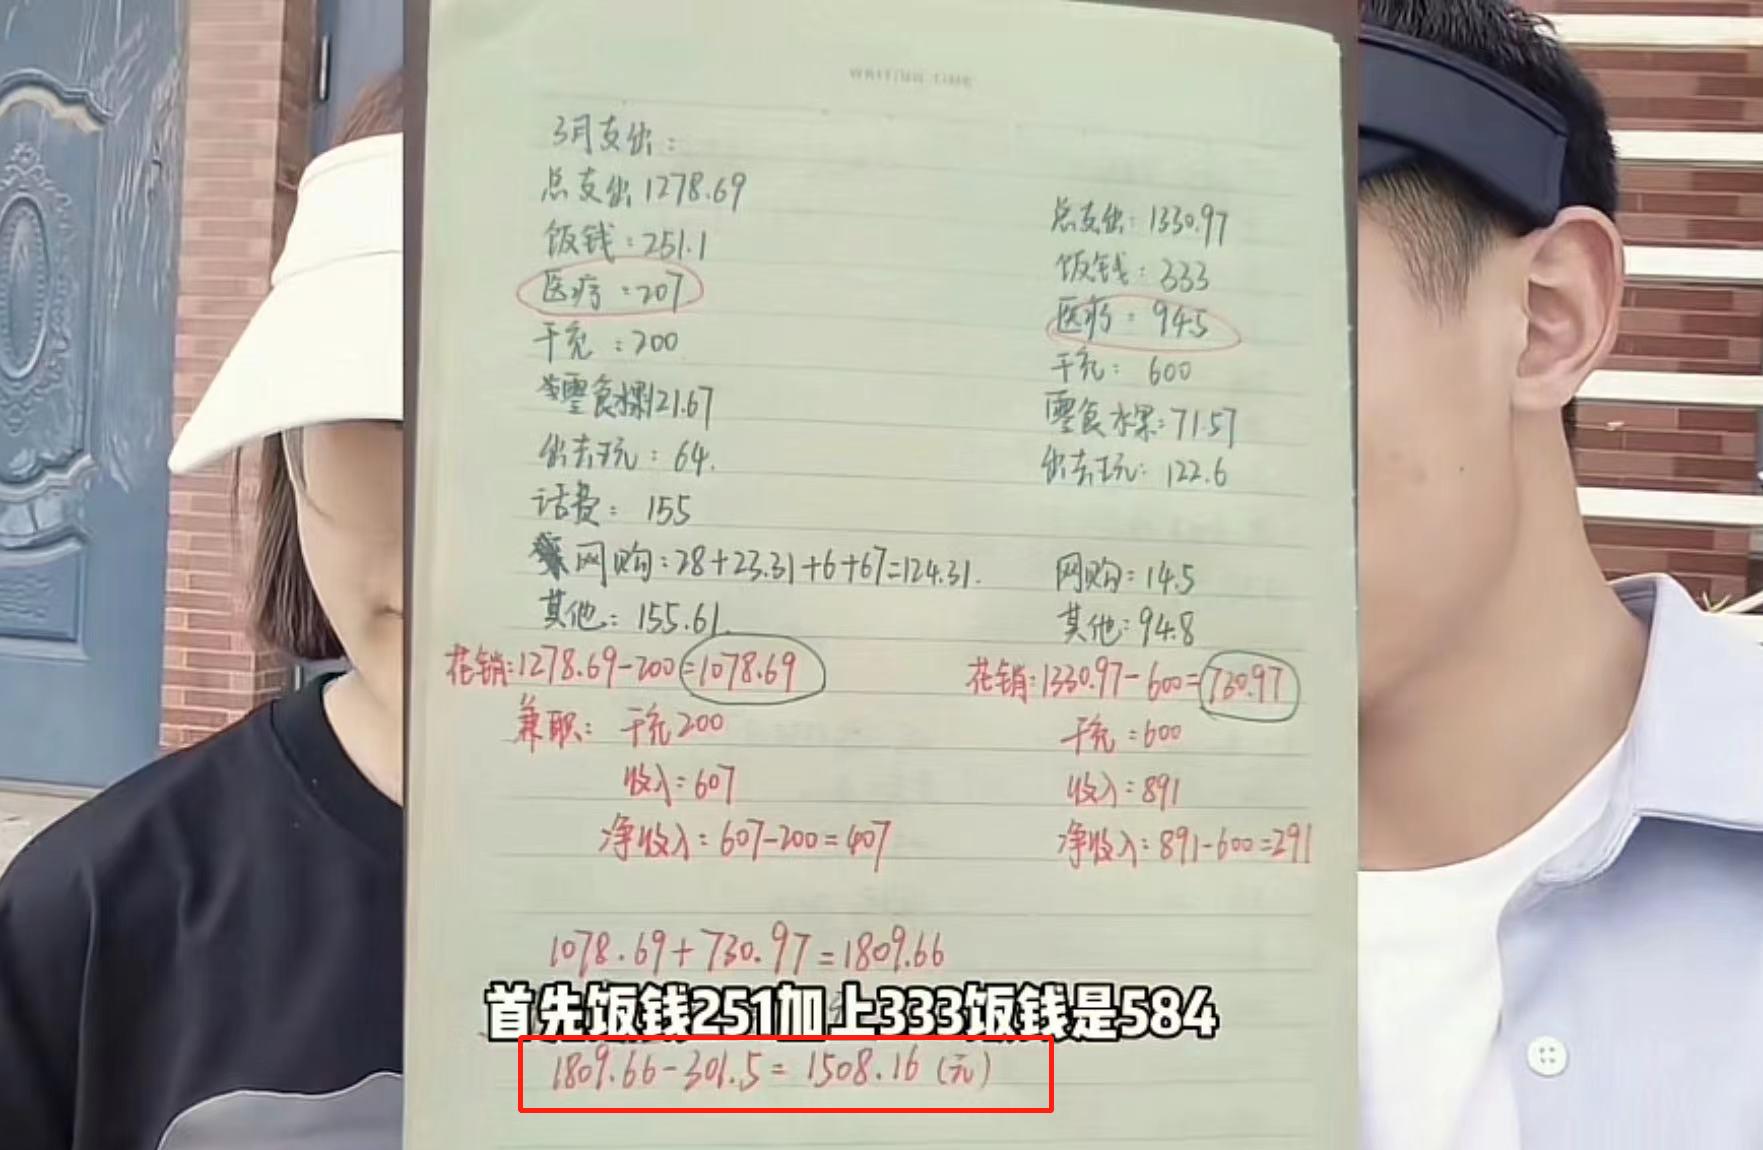 WRITING TIME
3月支出:
总支出1278.69
饭钱:251.1
医疗:207
干充:200
零食水果121.67
出去玩:64.
话费:155
网购:28+23.31+6+67=124.31.
其他:155.61
花销:1278.69-200=1078.69
兼职: 干充200
收入:607
净收入:607-200=407
总支出:1330.97
饭钱:333
医疗:94.5
干充:600
零食水果:71.57
出去玩:122.6
网购:14.5
其他:94.8
花销:1330.97-600=730.97
干充:600
收入:891
净收入:891-600=291
1078.69+730.97=1809.66
首先饭钱251加上333饭钱是584
1809.66-301.5=1508.16(元)